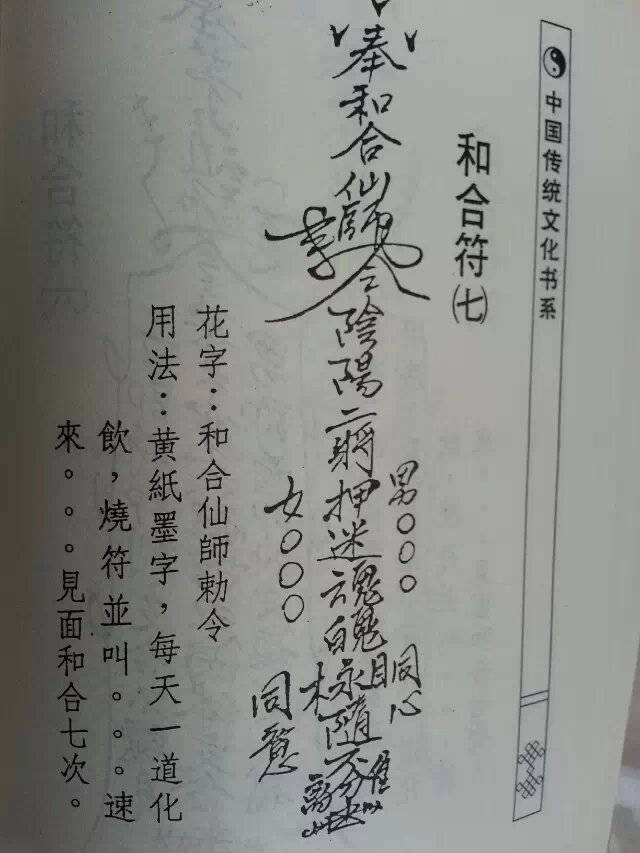 中国传统文化书系
和合符(七)
男○○○ 同心
奉和合仙師令陰陽二將押迷魂魄隨不
女○○○ 同意
花字:和合仙師勅令
用法:黄紙墨字,每天一道化
飲,燒符並叫。。。速
來。。。見面和合七次。